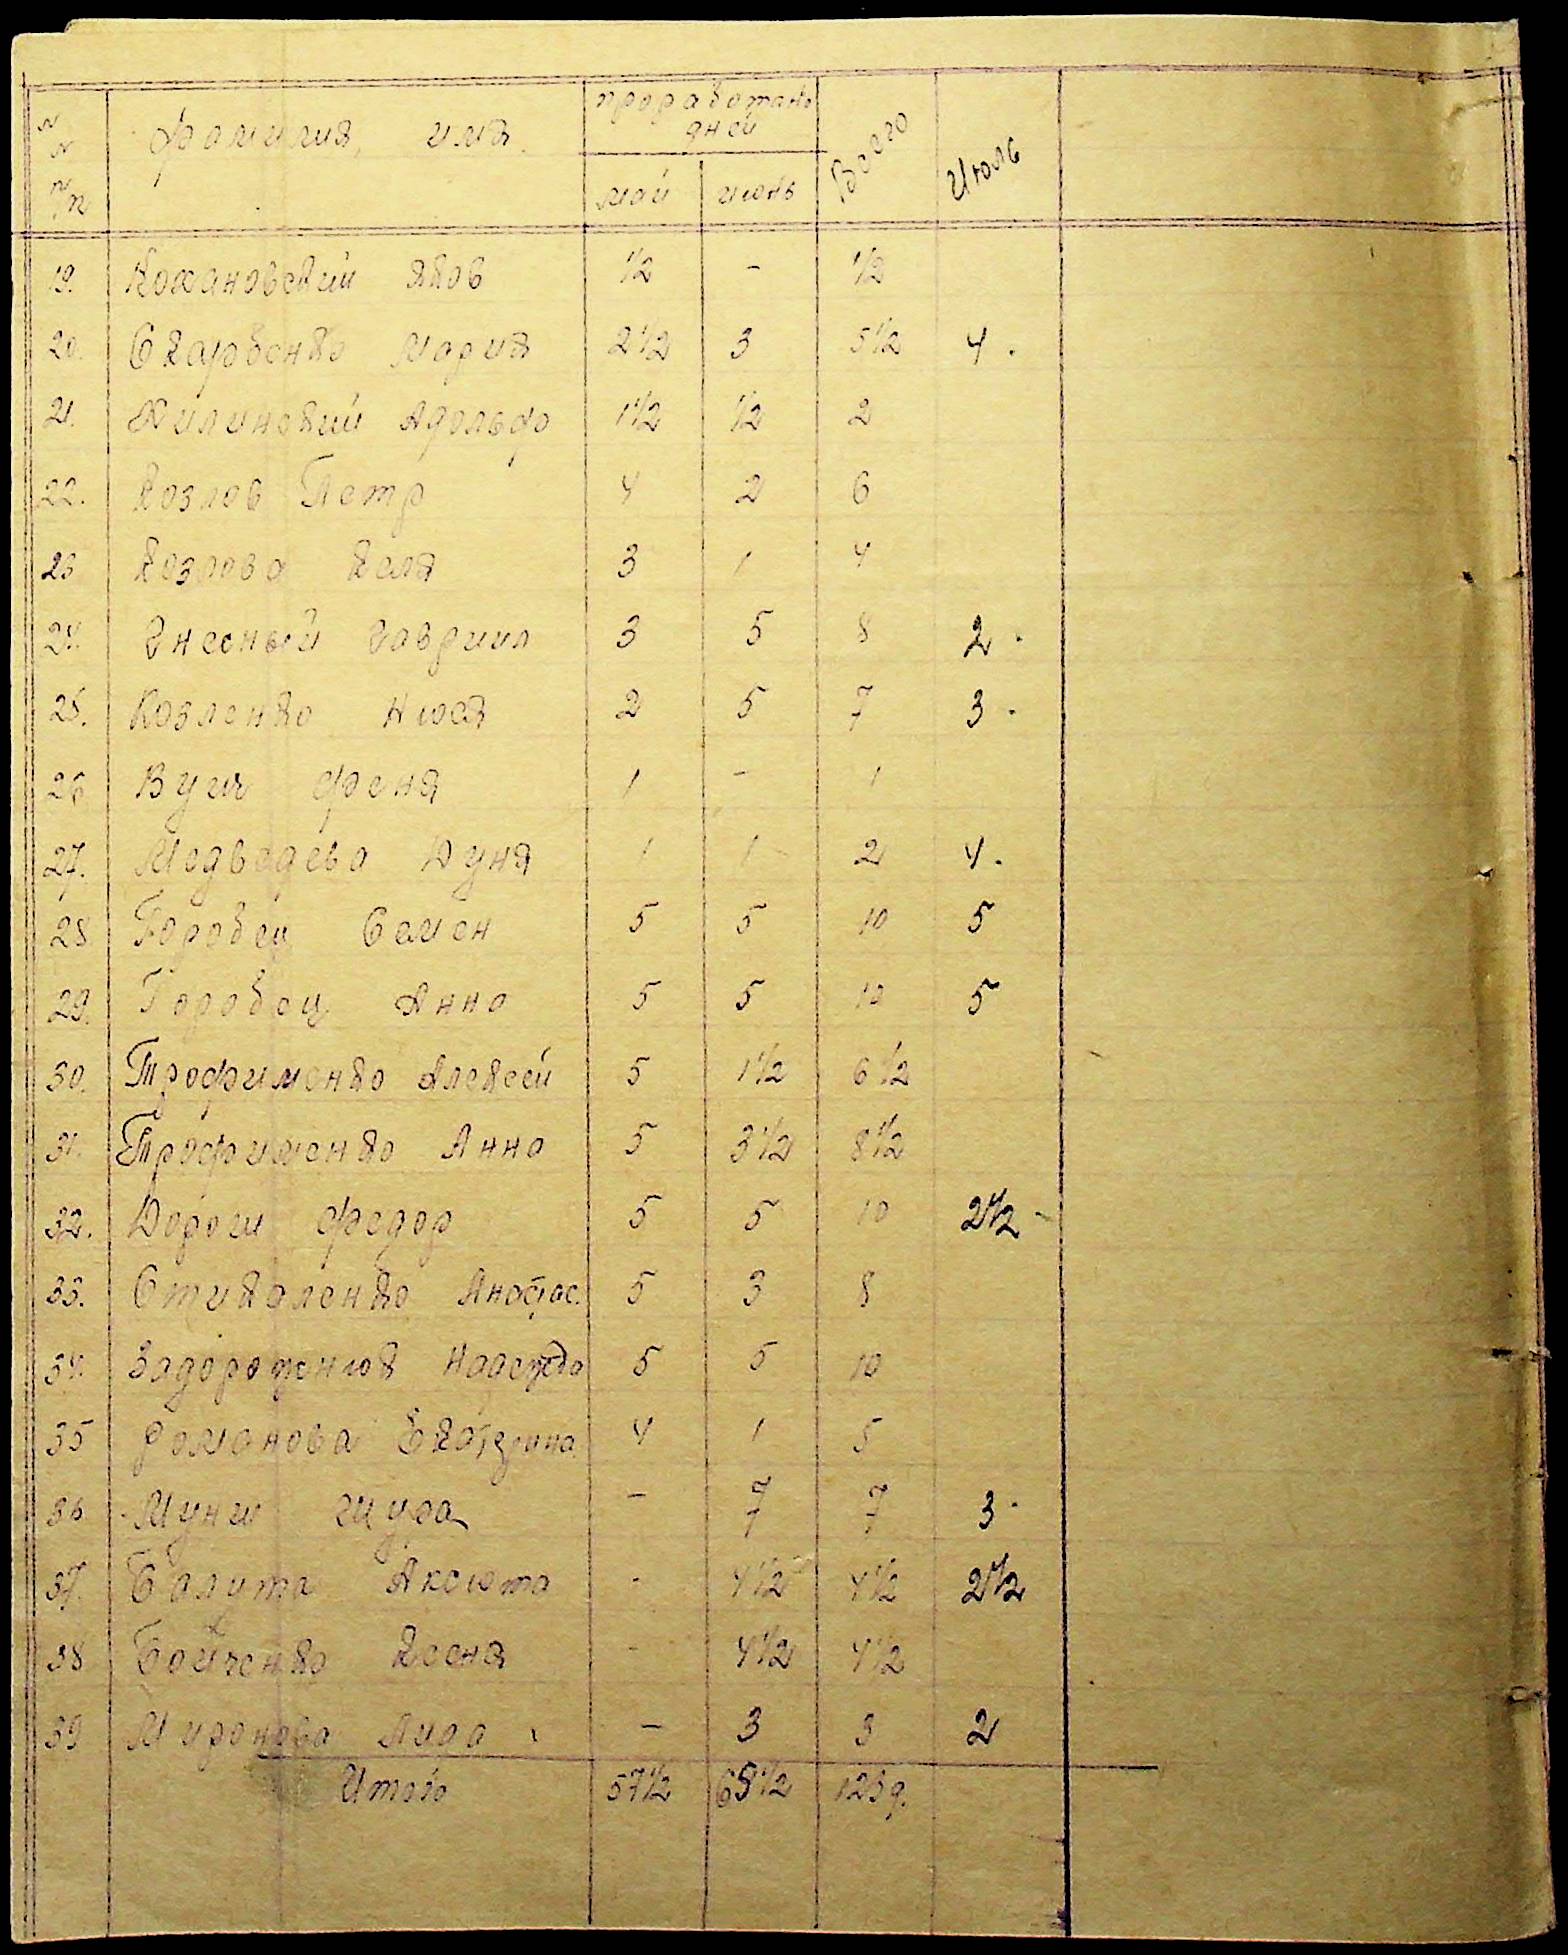 N N п/п фамилия, имя. проработано дней Всего Июль
май июнь
19. Кохановский Яков 1/2 - 1/2
20. Скаровенко Мария 2 1/2 3 5 1/2 4.
21. Жилинский Адольф 1 1/2 1/2 2
22. Козлов Петр 4 2 6
23 Козлова Келя 3 1 4
24. Гнесный Гавриил 3 5 8 2.
25. Козленко Нюся 2 5 7 3.
26 Вуш феня 1 - 1
27. Медведева Дуня 1 1 2 4.
28 Горобец Семен 5 5 10 5
29. Горобец Анна 5 5 10 5
30. Трофименко Алексей 5 1 1/2 6 1/2
31. Трофименко Анна 5 3 1/2 8 1/2
32. Дорош федор 5 5 10 2 1/2
33. Стикаленко Анастас. 5 3 8
34. Задорожнюя Надежда 5 5 10
35 Романова Екатерина 4 1 5
36 Мунш Шура - 7 7 3.
37. Балита Аксюта - 4 1/2 4 1/2 2 1/2
38 Бойченко Ксеня - 4 1/2 4 1/2
39 Миронова Лида - 3 3 2
Итого 57 1/2 65 1/2 123 д.